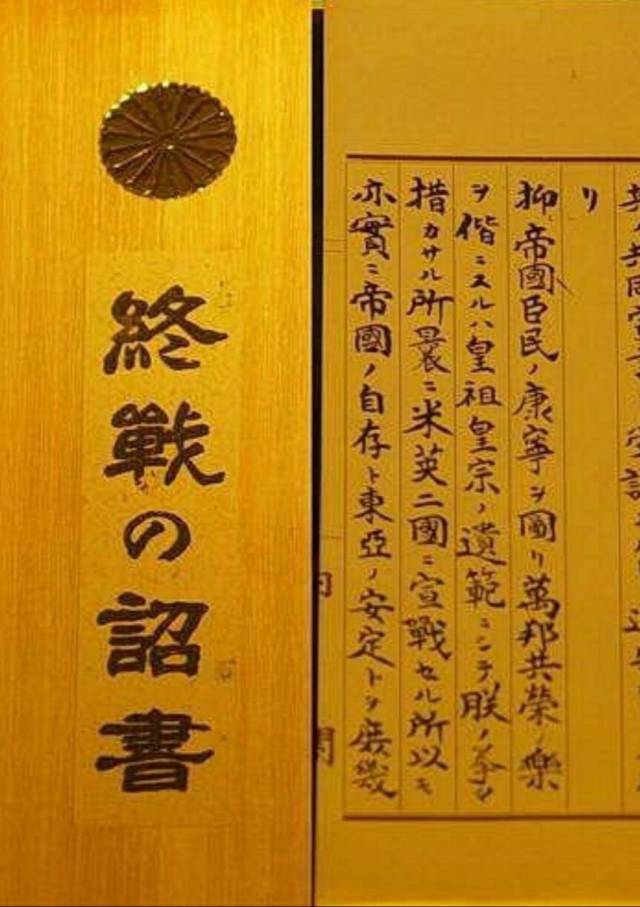 終戰の詔書
リ
抑〻帝國臣民ノ康寧ヲ圖リ萬邦共榮ノ樂
ヲ偕ニスルハ皇祖皇宗ノ遺範ニシテ朕ノ拳〻
措カサル所曩ニ米英二國ニ宣戰セル所以モ
亦實ニ帝國ノ自存ト東亞ノ安定トヲ庶幾